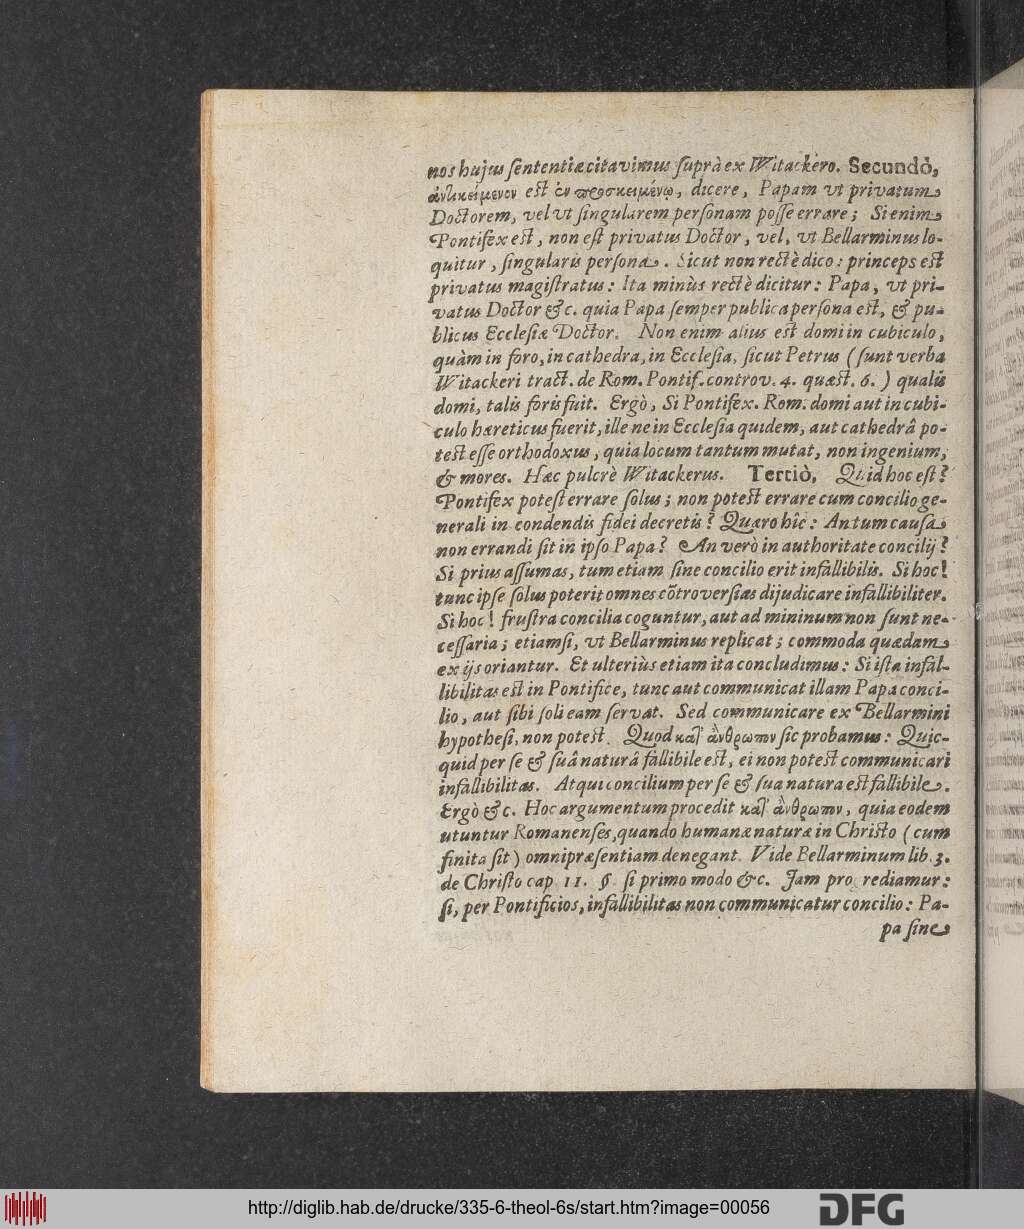 nos hujus ſententiæ citavimus ſuprà ex Witackero. Secundò,
ἀντικείμενον est ἐν προσκειμένῳ, dicere, Papam vt privatum
Doctorem, vel vt ſingularem perſonam poſſe errare; Si enim
Pontifex est, non eſt privatus Doctor, vel, vt Bellarminus lo-
quitur, ſingularis perſona. Sicut non rectè dico: princeps est
privatus magiſtratus: Ita minùs rectè dicitur: Papa, vt pri-
vatus Doctor &c. quia Papa ſemper publica perſona est, & pu-
blicus Eccleſiæ Doctor. Non enim alius est domi in cubiculo,
quàm in foro, in cathedra, in Eccleſia, ſicut Petrus (ſunt verba
Witackeri tract. de Rom. Pontif. controv. 4. quæst. 6.) qualis
domi, talis foris fuit. Ergò, Si Pontifex. Rom. domi aut in cubi-
culo hæreticus fuerit, ille ne in Eccleſia quidem, aut cathedrâ po-
test eſſe orthodoxus, quia locum tantum mutat, non ingenium,
& mores. Hæc pulcrè Witackerus. Tertiò, Quid hoc eſt?
Pontifex poteſt errare ſolus; non potest errare cum concilio ge-
nerali in condendis fidei decretis? Quæro hîc: An tum cauſa
non errandi ſit in ipſo Papa? An verò in authoritate concilij?
Si prius aſſumas, tum etiam ſine concilio erit infallibilis. Si hoc!
tunc ipſe ſolus poterit omnes cõtroverſias dijudicare infallibiliter.
Si hoc! fruſtra concilia coguntur, aut ad mininum non ſunt ne-
ceſſaria; etiamſi, vt Bellarminus replicat; commoda quædam
ex ijs oriantur. Et ulteriùs etiam ita concludimus: Si iſta infal-
libilitas est in Pontifice, tunc aut communicat illam Papa conci-
lio, aut ſibi ſoli eam ſervat. Sed communicare ex Bellarmini
hypotheſi, non potest. Quod κατ' ἀνθρωπον ſic probamus: Quic-
quid per ſe & ſuâ naturâ fallibile est, ei non potest communicari
infallibilitas. Atqui concilium per ſe & ſua natura est fallibile.
Ergò &c. Hoc argumentum procedit κατ' ἀνθρωπον, quia eodem
utuntur Romanenſes, quando humanæ naturæ in Chriſto (cum
finita ſit) omnipræſentiam denegant. Vide Bellarminum lib. 3.
de Chriſto cap. 11. §. ſi primo modo &c. Jam progrediamur:
ſi, per Pontificios, infallibilitas non communicatur concilio: Pa-
pa ſine
http://diglib.hab.de/drucke/335-6-theol-6s/start.htm?image=00056
DFG